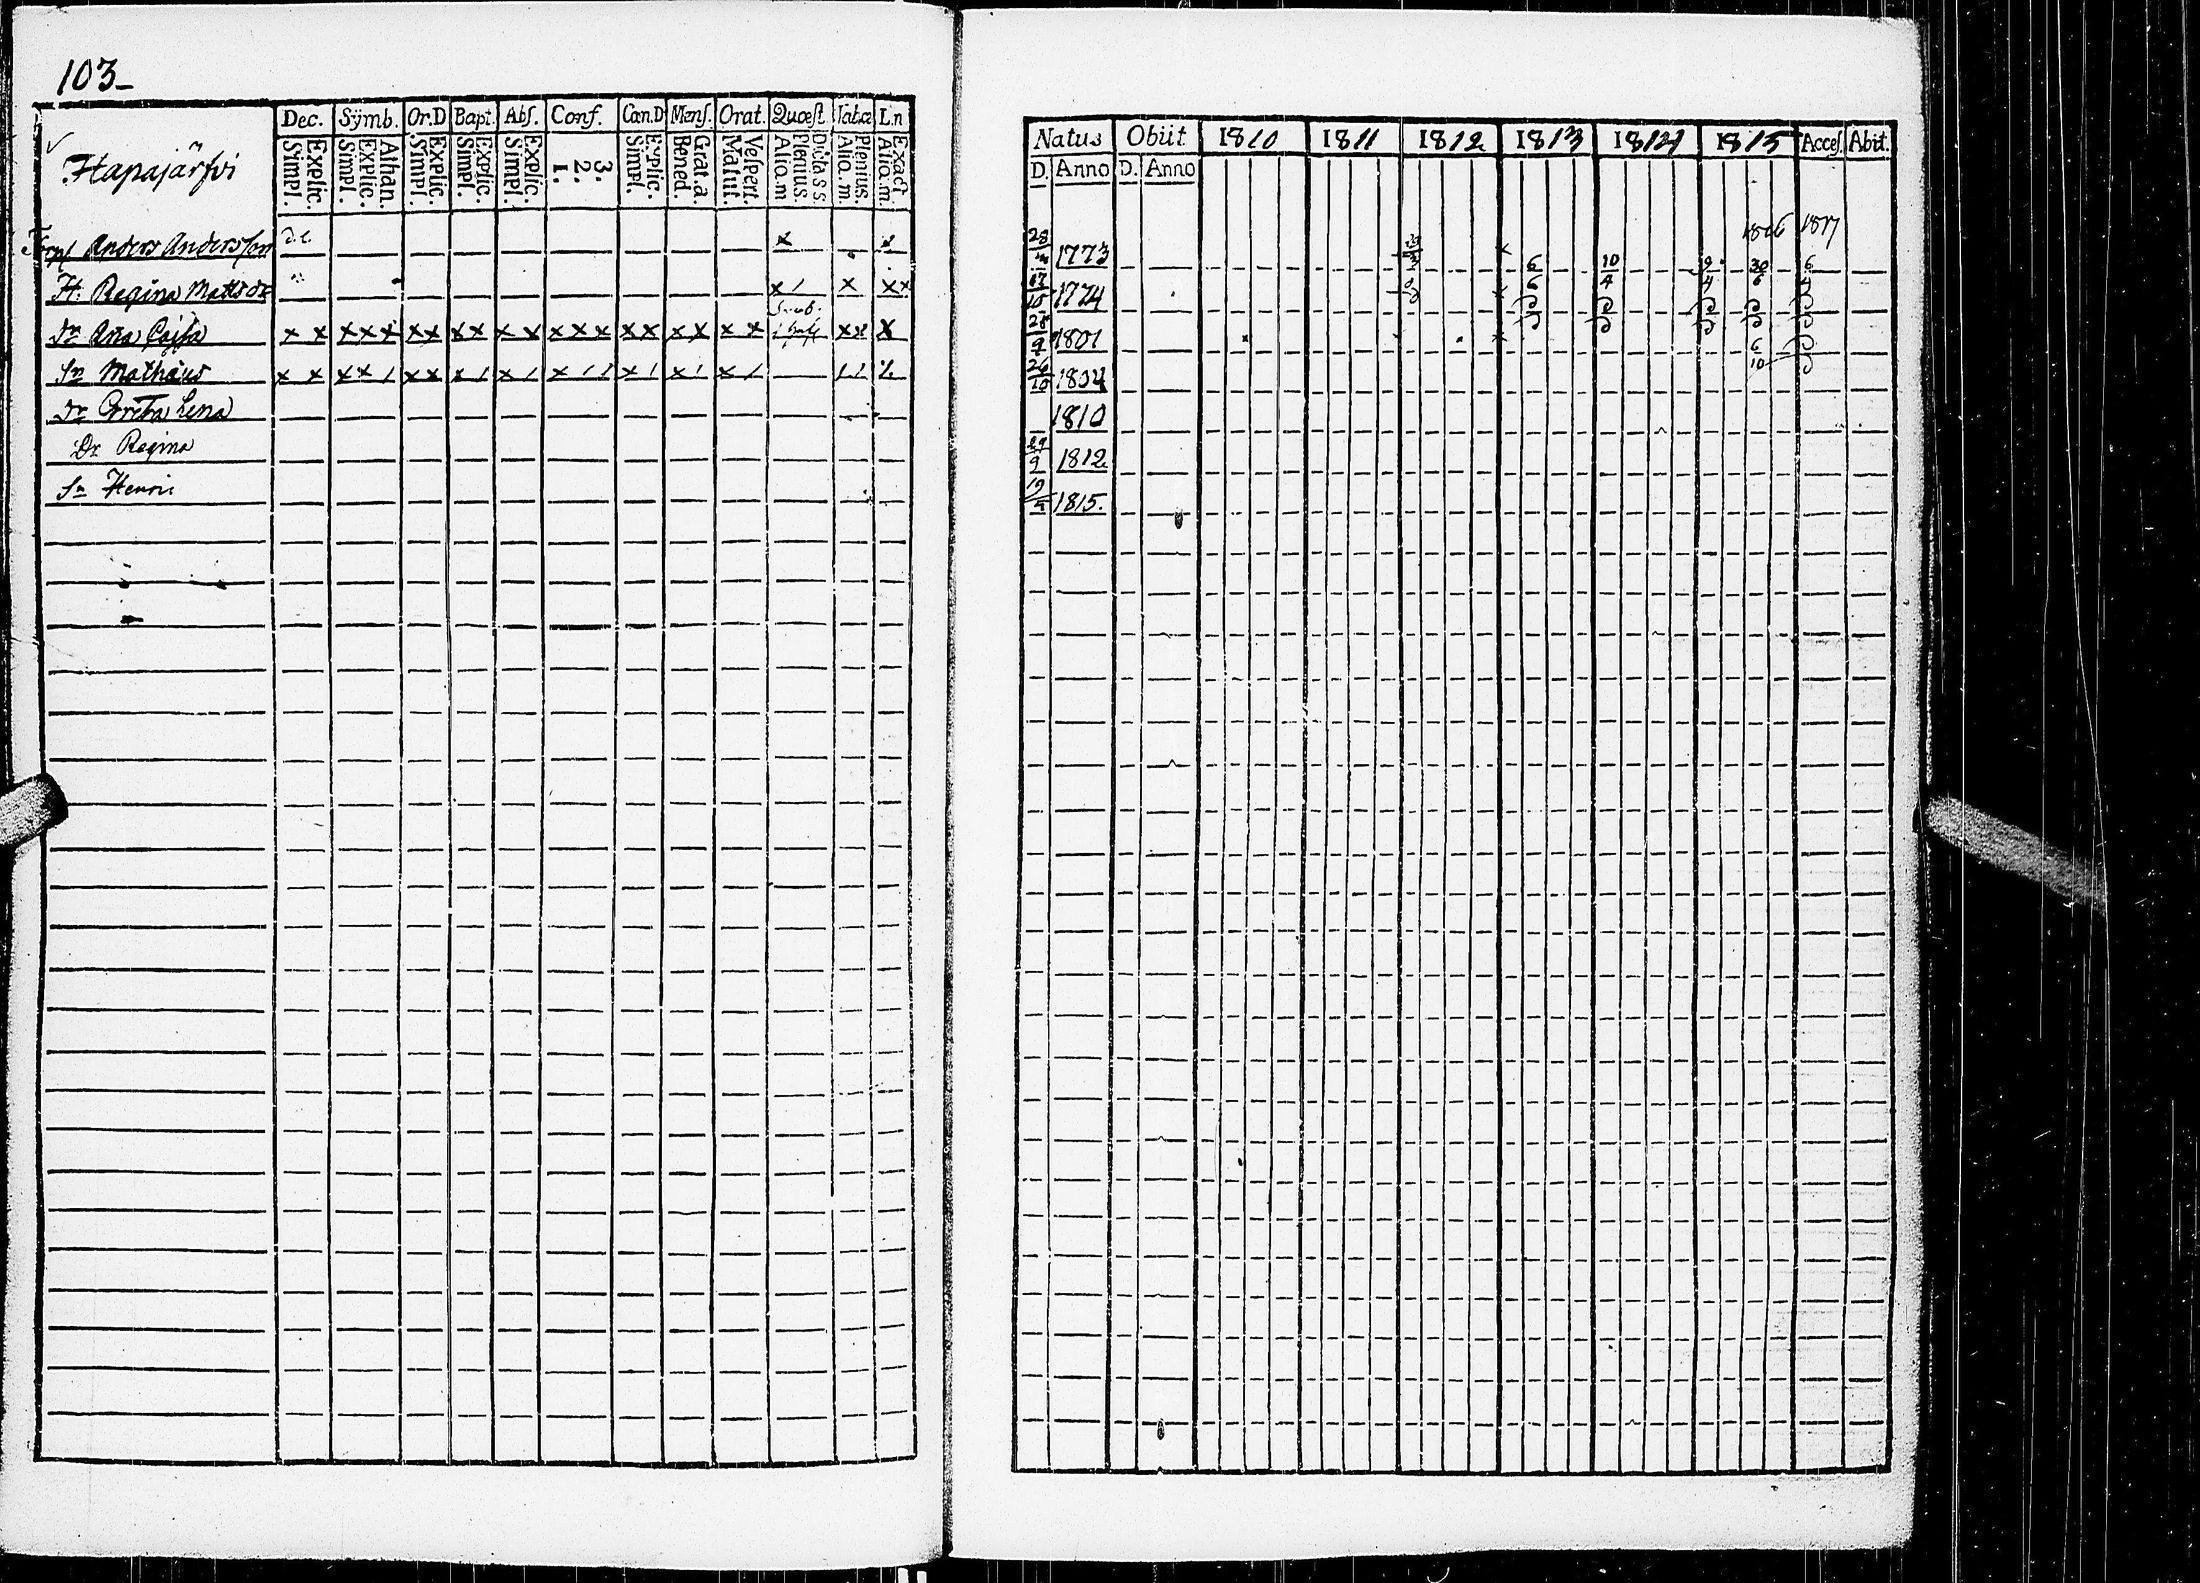 103
Dec. Sÿmb. Or.D Bapt. Abſ. Conf. Cœn.D Menſ. Orat. Quœſt. Tab.œ L.n
Hapajärfvi
Explic. Simpl. Athan. Explic. Simpl. Explic. Simpl. Explic. Simpl. Explic. Simpl. 3. 2. 1. Explic. Simpl. Grat.a. Bened. Veſpert. Matut. Dicta S.S. Plenius. Aliq.m Plenius. Aliq.m. Exact. Aliq.m.
Torp Anders Andersſon
H. Regina Mattsdr x 1 x x x
Dr Ana Cajsa x x x x x x x x x x x x x x x x x x x x x x x
Sn Mathäus x x x x 1 x x x 1 x 1 x 1 1 x 1 x 1 x 1 1 1
Dr Greta Lena
Dr Regina
Sn Henric
Natus Obiit 1810 1811 1812 1813 1814 1815 Acceſ. Abit.
D. Anno D. Anno
1816 1817
28 1773 6/6 10/4 9/4 30/6 6
17/10 1774
28/9 1801 6/10
26/10 1804
1810
29/9 1812
19 1815.